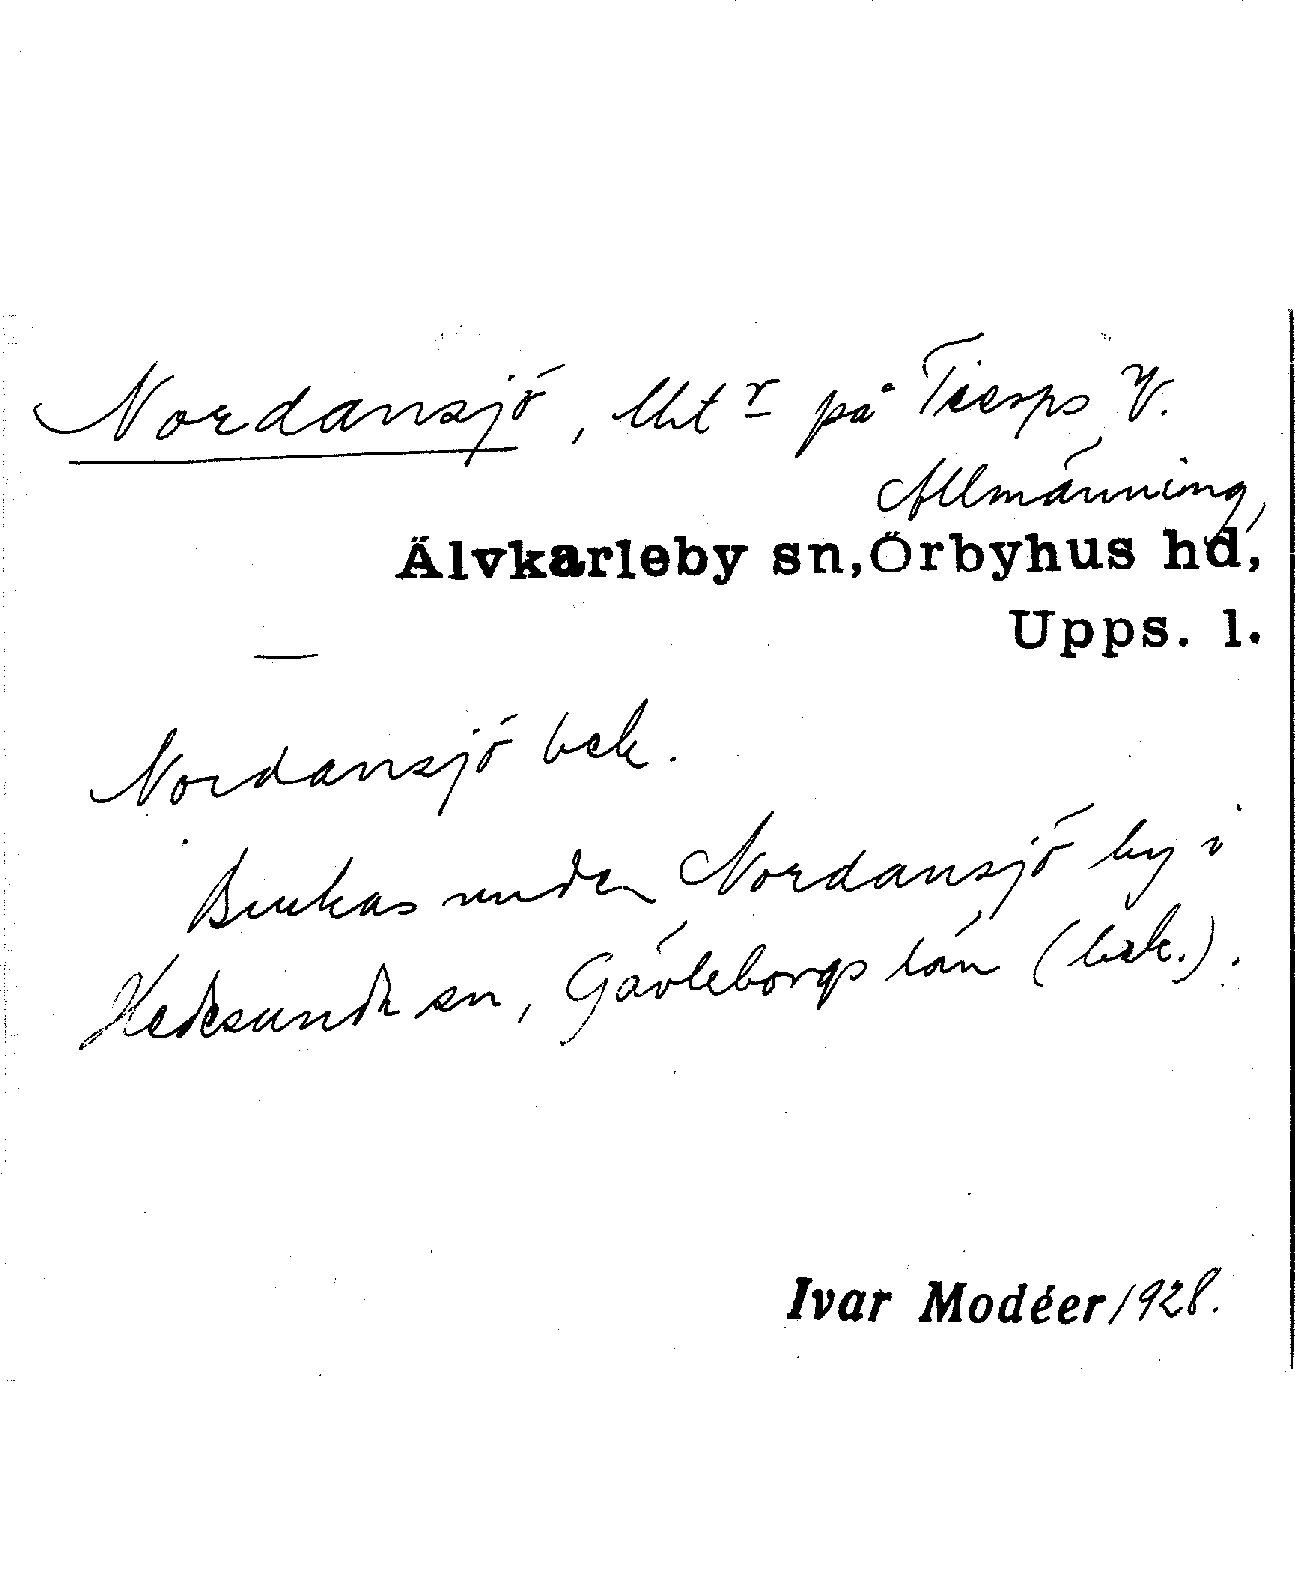 Nordansjö, Utj r på Tierps V.
Allmänning,
Älvkarleby sn, Örbyhus hd,
Upps. l.
—
Nordansjö bek.
Brukas under Nordansjö by i
Hedesunda sn, Gävleborgs län (bek.).
Ivar Modéer/1928.